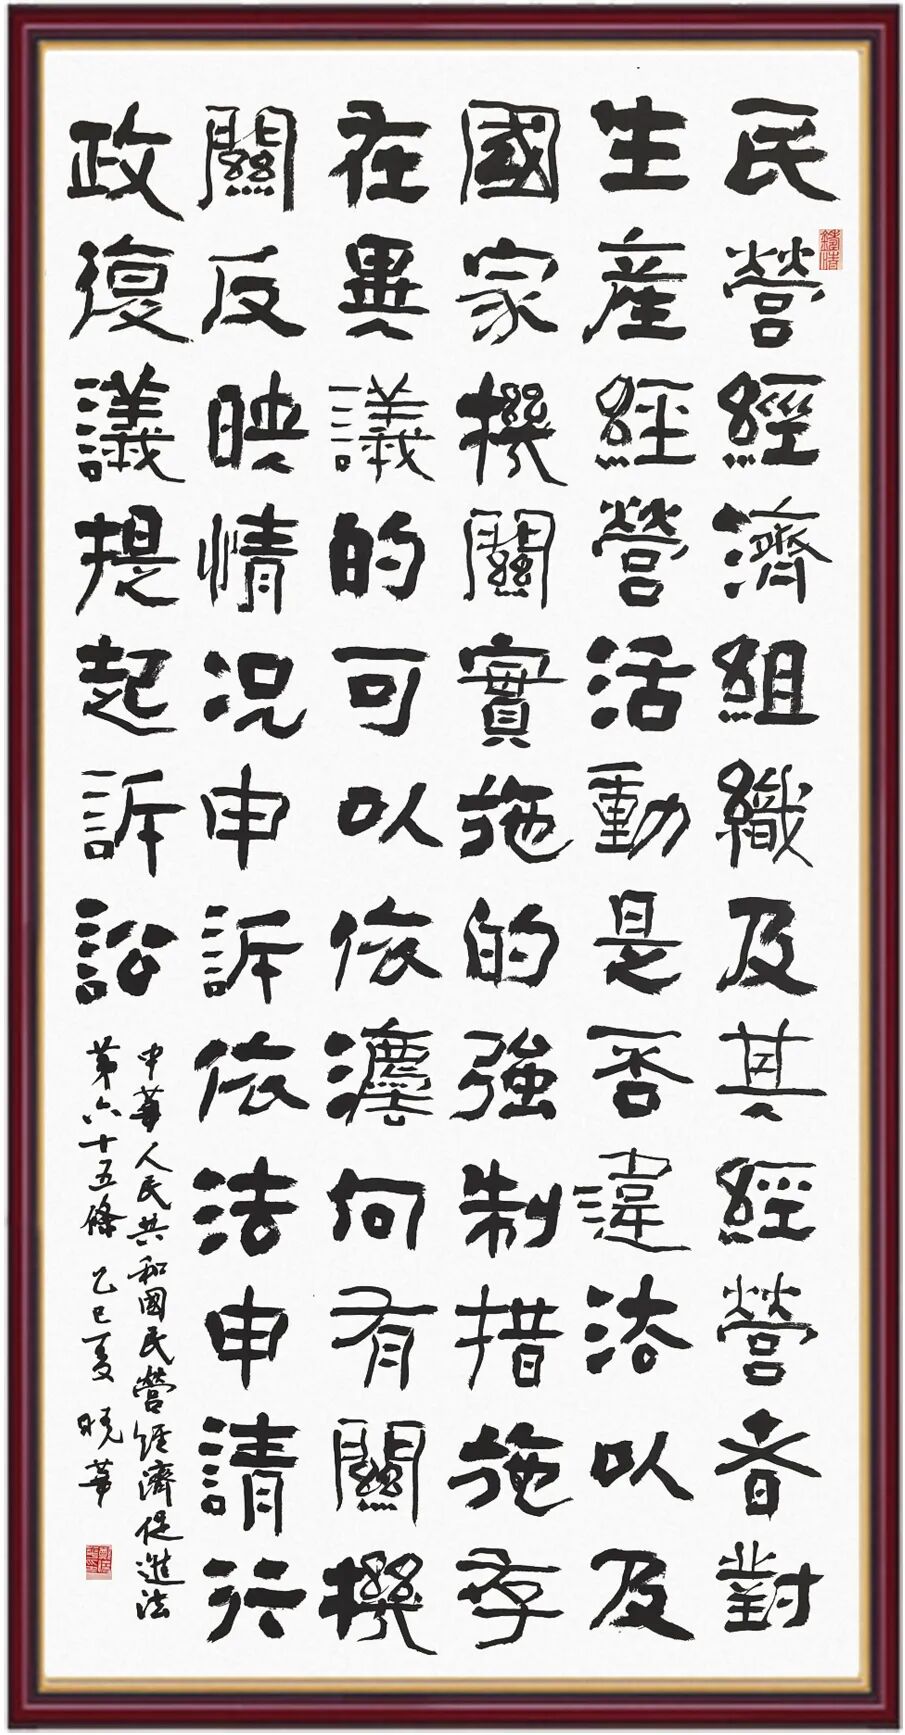 民營經濟組織及其經營者對
生產經營活動是否違法以及
國家機關實施的強制措施存
在異議的可以依灋向有關機
關反映情况申訴依法申請行
政復議提起訴訟
中華人民共和國民營經濟促進法
第六十五條 乙巳夏 曉華